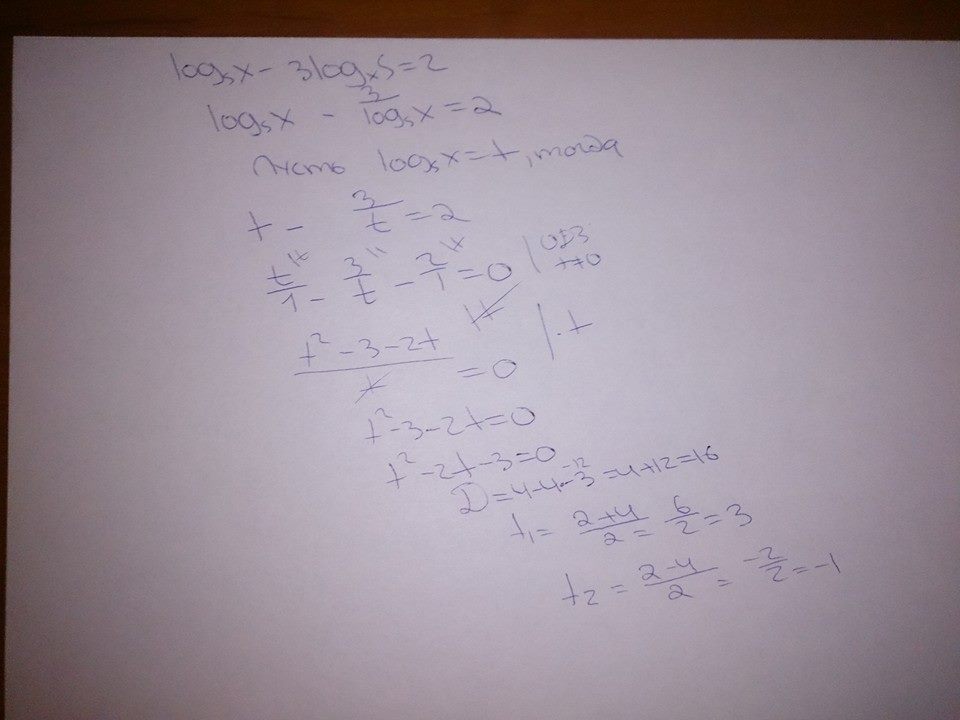 log₅x - 3logₓ5 = 2
log₅x - 3/log₅x = 2
Пусть log₅x = t, тогда
t - 3/t = 2
t/1 - 3/t - 2/1 = 0 | ОДЗ t≠0
(t² - 3 - 2t)/t = 0 | · t
t² - 3 - 2t = 0
t² - 2t - 3 = 0
D = 4 - 4·-3 = 4 + 12 = 16
t₁ = (2+4)/2 = 6/2 = 3
t₂ = (2-4)/2 = -2/2 = -1